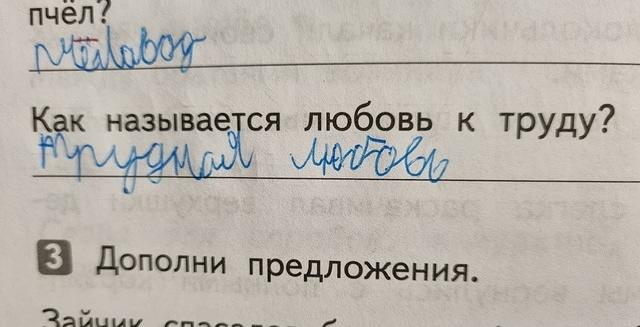 пчёл?
пчёлавод
Как называется любовь к труду?
трудная любовь
3 Дополни предложения.
Зайчик спасался